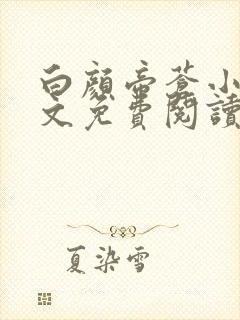 白顏帝蒼小
文免費閱讀
夏染雪